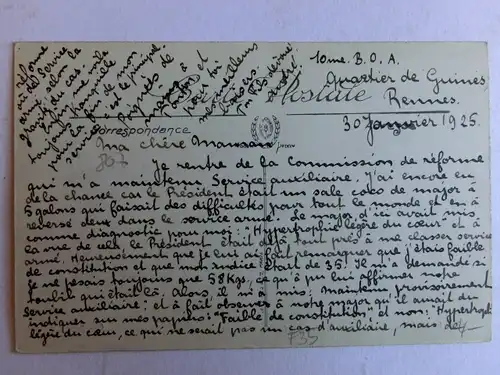 10me. B.O.A.
Quartier de Guines
Rennes.
Carte Postale
Correspondance
30 Janvier 1925.
Ma chère Maman,
Je rentre de la Commission de réforme
qui m'a maintenu Service auxiliaire. J'ai encore eu
de la chance car le Président était un sale coco de major à
5 galons qui faisait des difficultés pour tout le monde et en a
reversé deux dans le service armé. Le major d'ici avait mis
comme diagnostic pour moi: "Hypertrophie légère du cœur" et à
la vue de cela le Président était déjà tout prêt à me classer service
armé. Heureusement que je lui ai fait remarquer que j'étais faible
de constitution et que mon indice était de 35. Il m'a demandé si
je ne pesais toujours que 58Kgs, ce qu'a pu lui affirmer notre
toubib qui était là. Alors il m'a mis maintenu provisoirement
Service auxiliaire et a fait observer à notre major qu'il aurait dû
indiquer sur mes papiers: "Faible de constitution" et non: "Hypertrophie
légère du cœur, ce qui ne serait pas un cas d'auxiliaire, mais de
réforme
ou de Service
armé selon la
gravité du cas.
Enfin me voilà
tranquille
pour la fin de mon
service, c'est le principal.
de
et
pour toi
meilleurs
baisers.
Ton fils dévoué
André